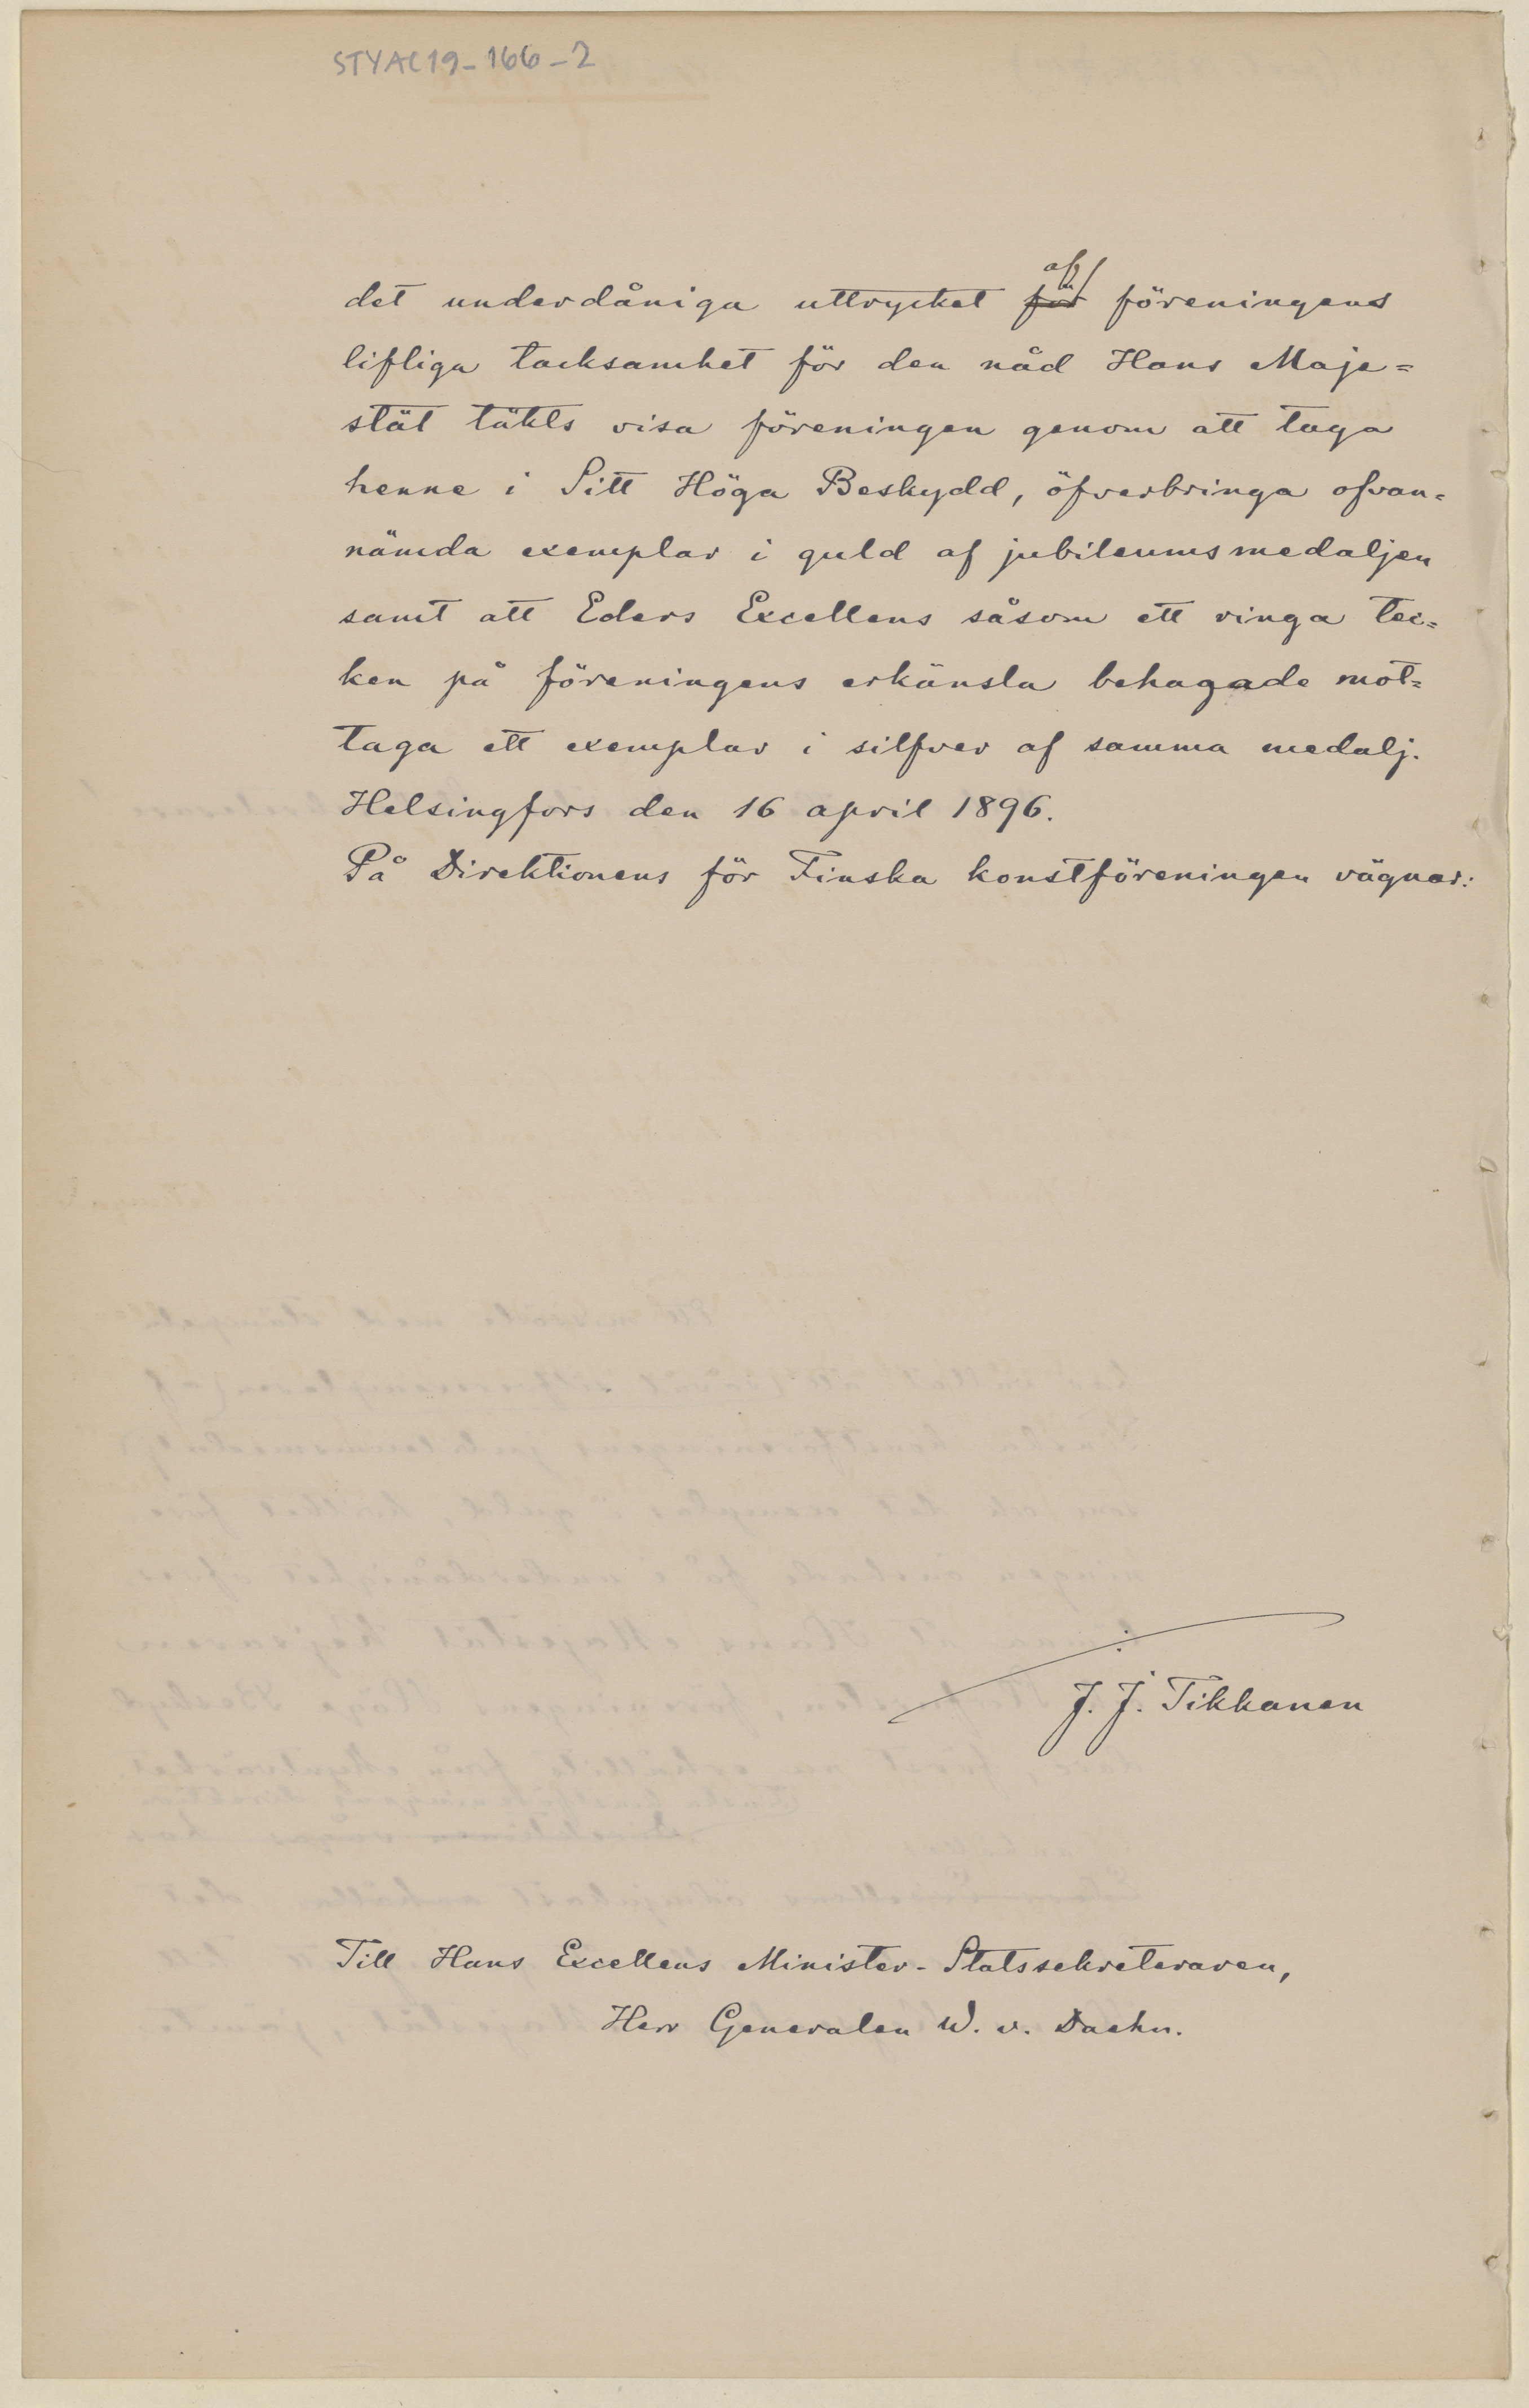 STYAC19-166-2
af
det underdåniga uttrycket för föreningens
lifliga tacksamhet för den nåd Hans Maje=
stät täkts visa föreningen genom att taga
henne i Sitt Höga Beskydd, öfverbringa ofvan=
nämda exemplar i guld af jubileumsmedaljen
samt att Eders Excellens såsom ett ringa tec=
ken på föreningens erkänsla behagade mot=
taga ett exemplar i silfver af samma medalj.
Helsingfors den 16 april 1896.
På Direktionens för Finska konstföreningen vägnar:
J. J. Tikkanen
Till Hans Excellens Minister-Statssekreteraren,
Herr Generalen W. v. Daehn.